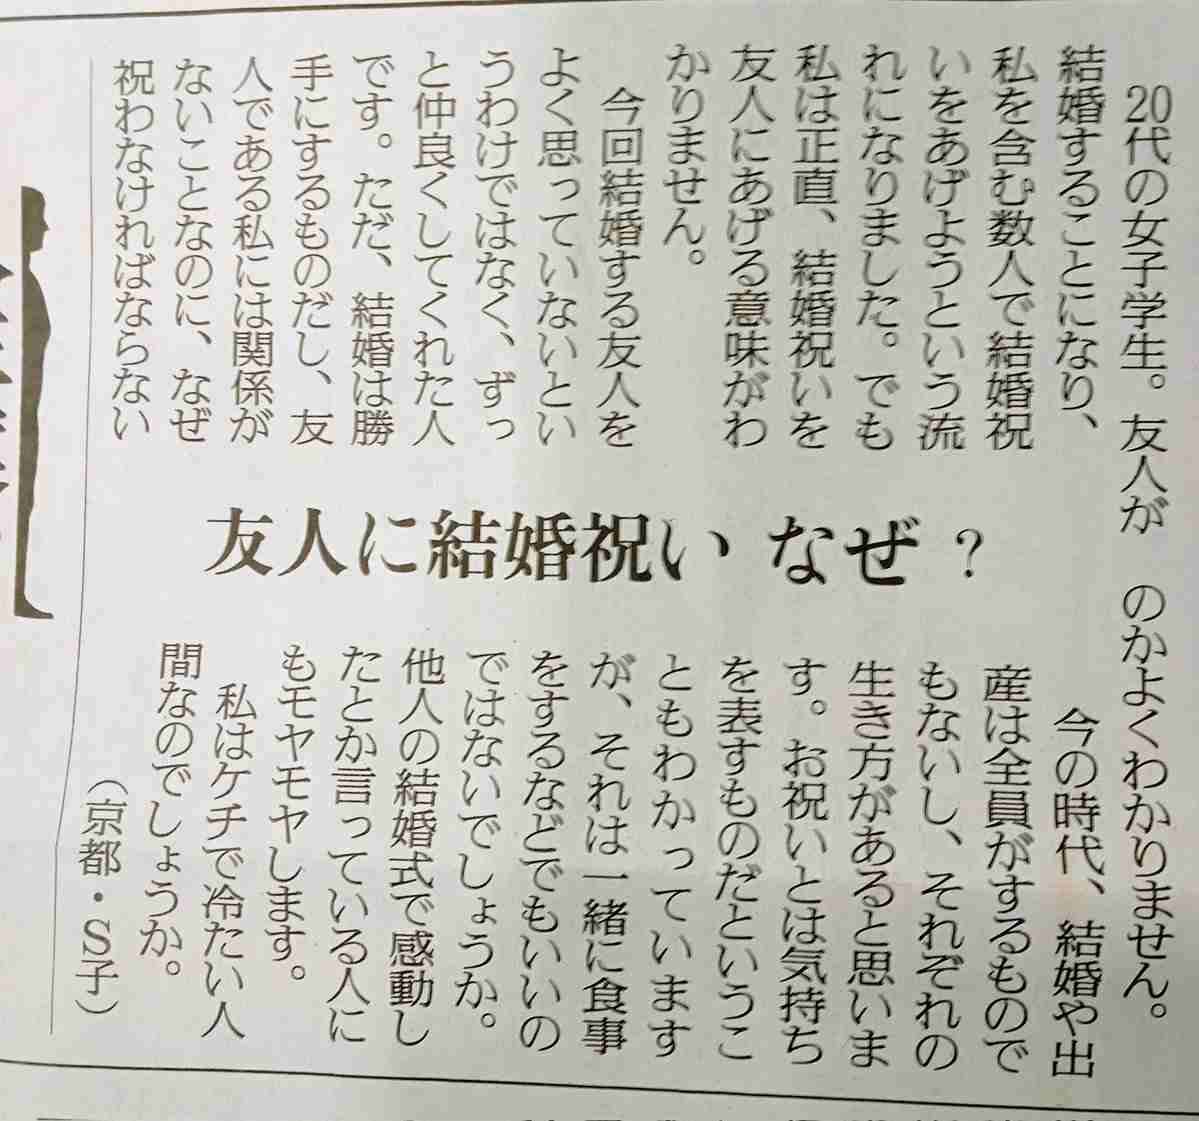 友人に結婚祝い なぜ？
20代の女子学生。友人が
結婚することになり、
私を含む数人で結婚祝
いをあげようという流
れになりました。でも
私は正直、結婚祝いを
友人にあげる意味がわ
かりません。
今回結婚する友人を
よく思っていないとい
うわけではなく、ずっ
と仲良くしてくれた人
です。ただ、結婚は勝
手にするものだし、友
人である私には関係が
ないことなのに、なぜ
祝わなければならない
のかよくわかりません。
今の時代、結婚や出
産は全員がするもので
もないし、それぞれの
生き方があると思いま
す。お祝いとは気持ち
を表すものだというこ
ともわかっています
が、それは一緒に食事
をするなどでもいいの
ではないでしょうか。
他人の結婚式で感動し
たとか言っている人に
もモヤモヤします。
私はケチで冷たい人
間なのでしょうか。
（京都・Ｓ子）